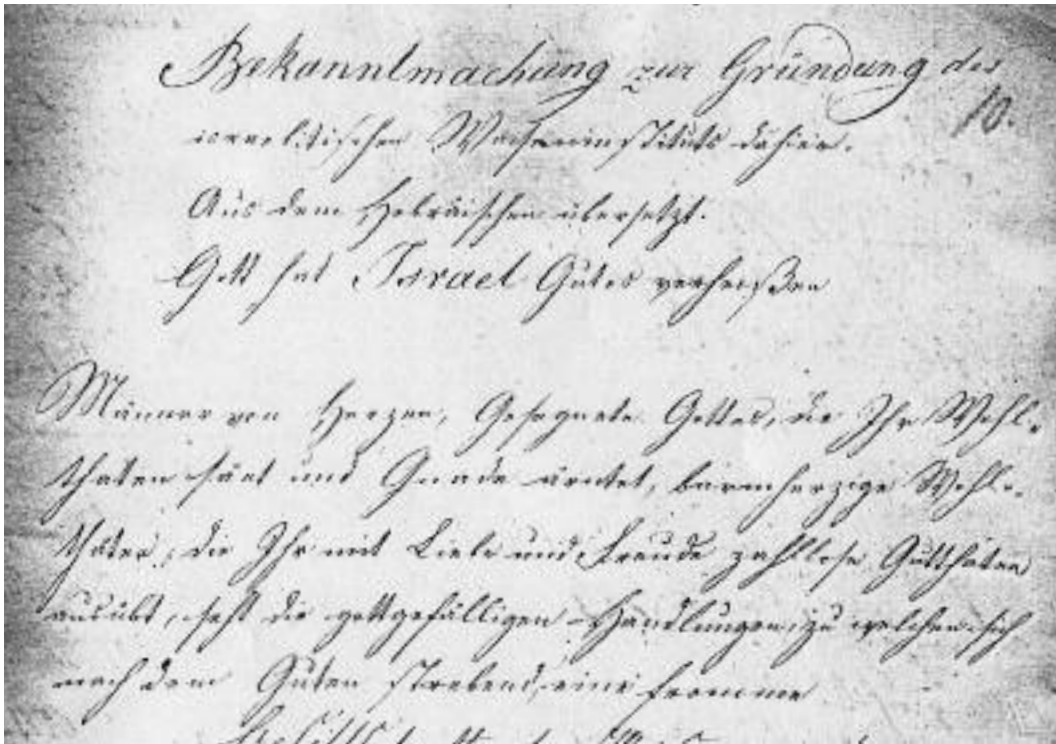 Bekanntmachung zur Gründung des
10.
israelitischen Waiseninstituts dahier.
Aus dem Hebräischen übersetzt.
Gott hat Israel Gutes verheißen
Männer von Herzen, Gesegnete Gottes, die Ihr Wohl-
thaten säet und Gnade ärntet, barmherzige Wohl-
thäter, die Ihr mit Liebe und Freude zahllose Gutthaten
ausübt, seht die gottgefälligen Handlungen, zu welchen sich
nach dem Guten strebend, eine fromme